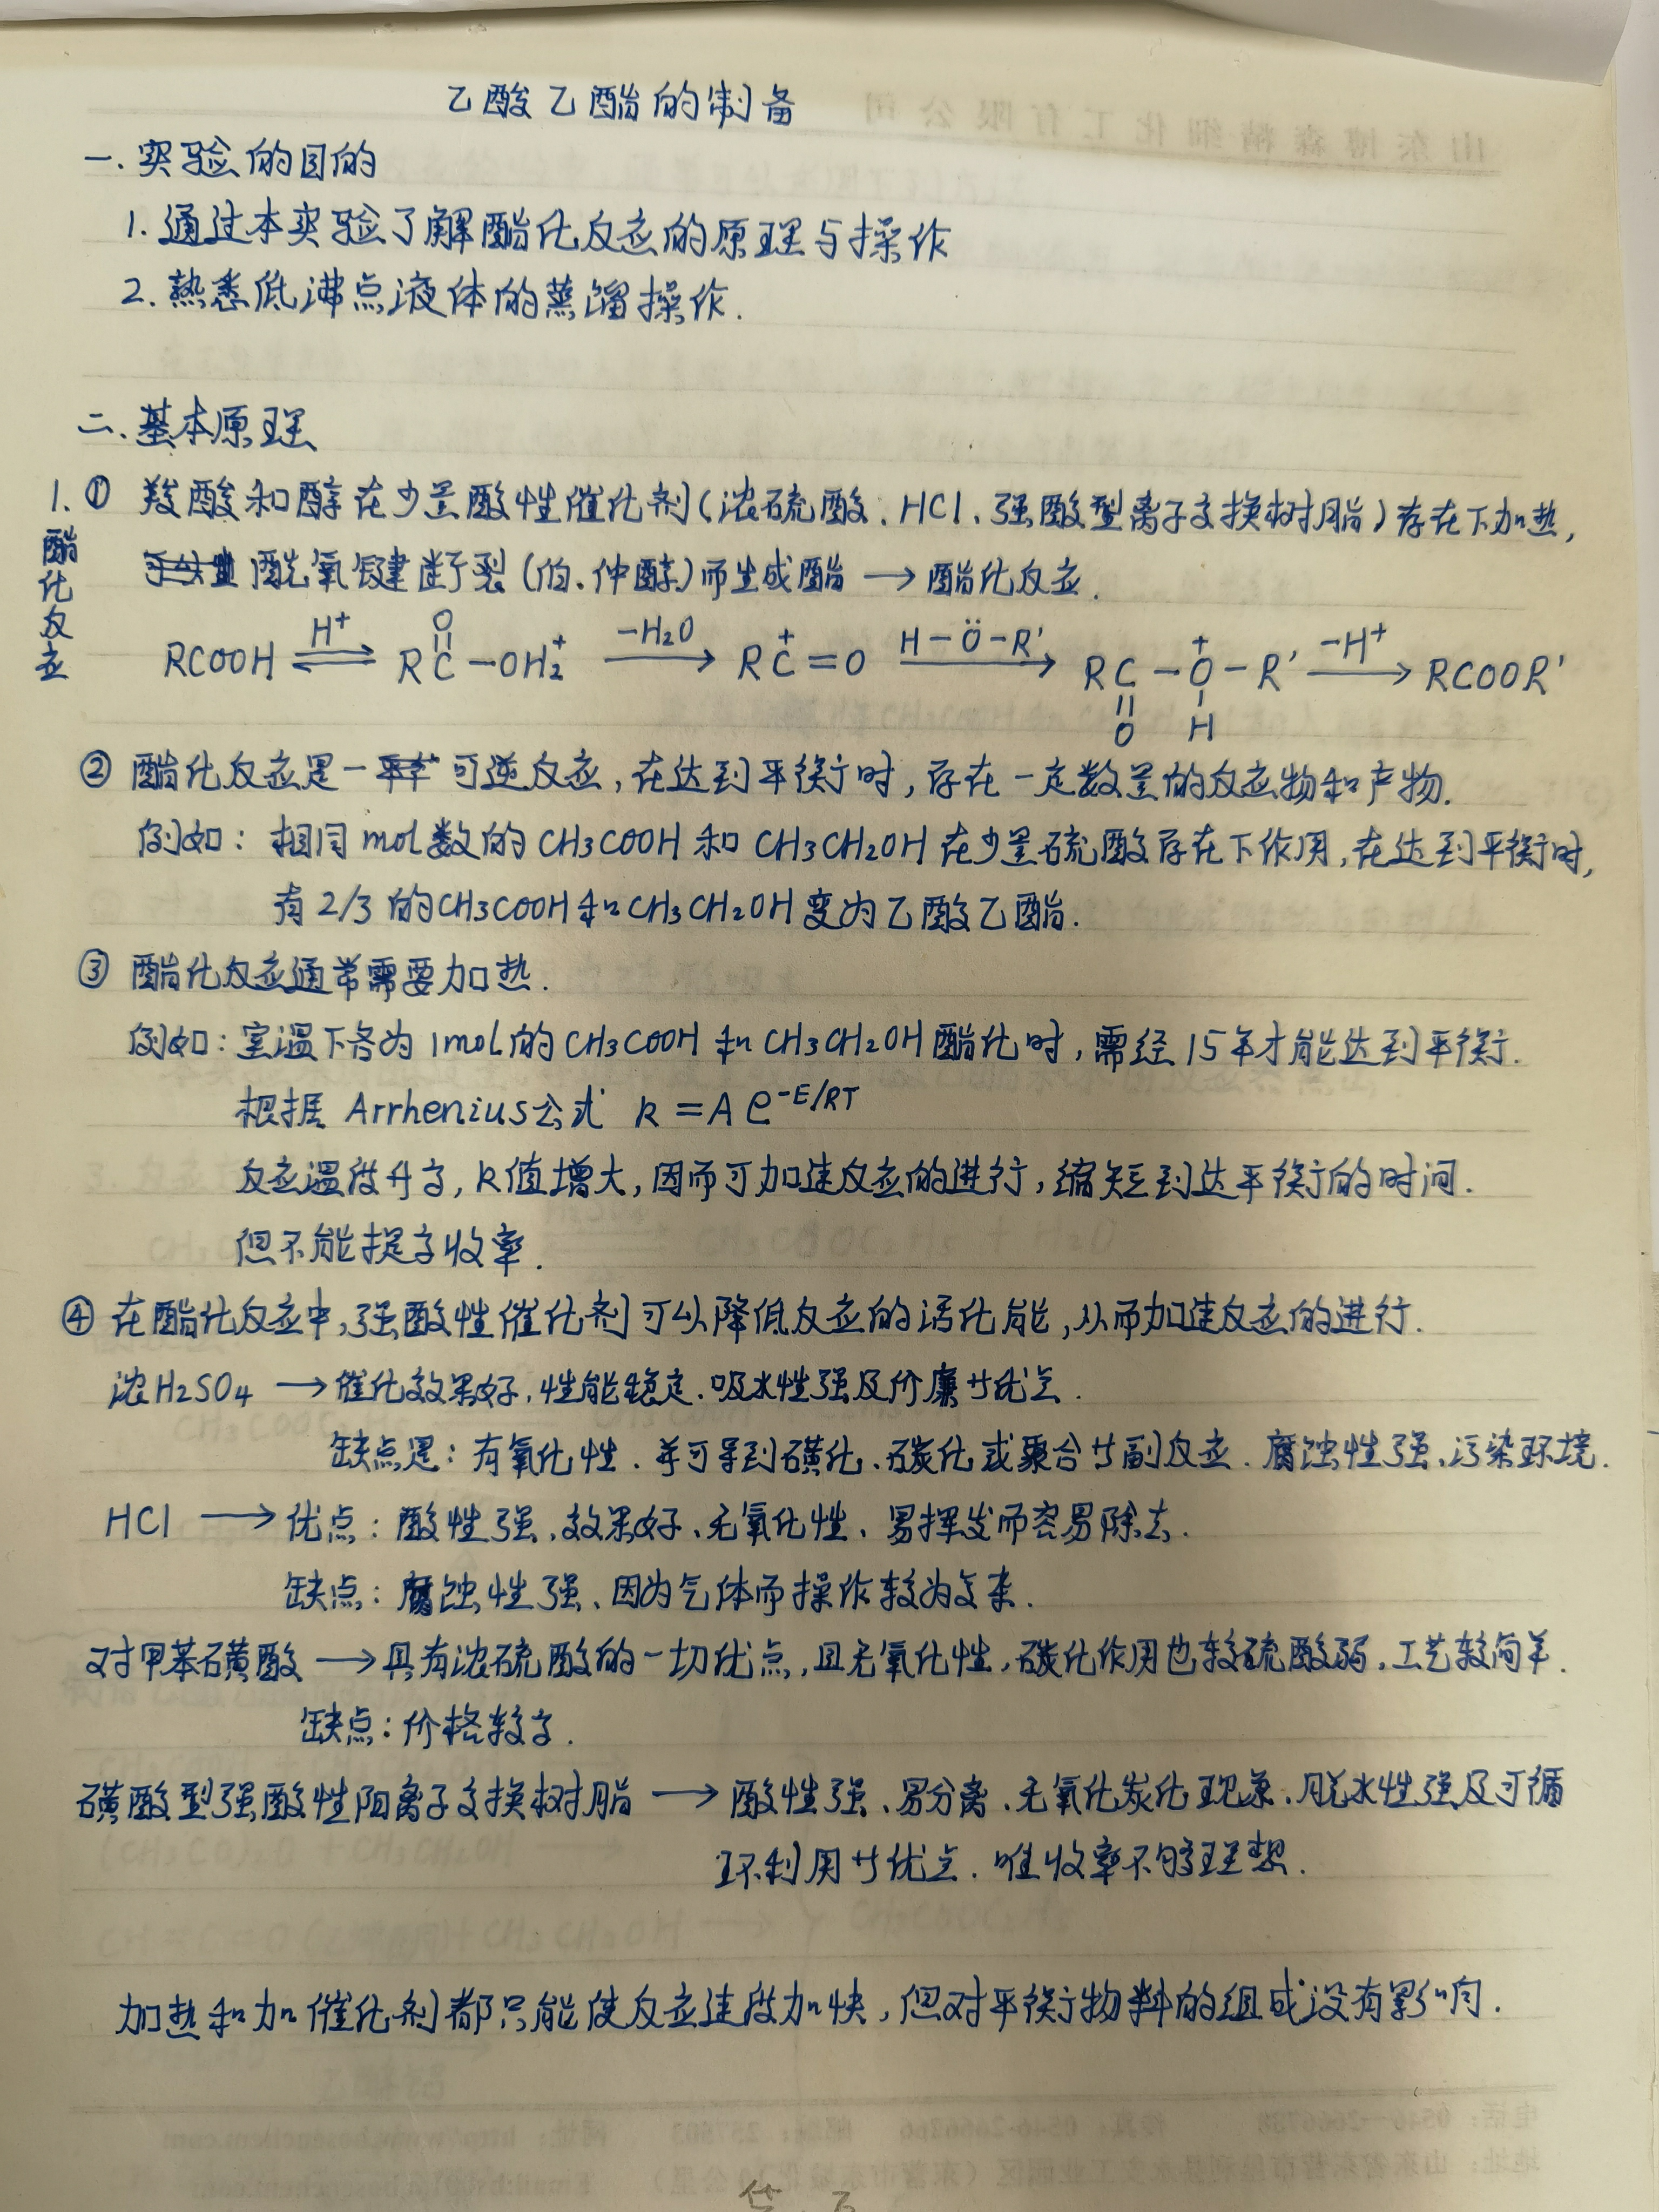 乙酸乙酯的制备
一.实验的目的
1.通过本实验了解酯化反应的原理与操作
2.熟悉低沸点液体的蒸馏操作.
二.基本原理
1.酯化反应
① 羧酸和醇在少量酸性催化剂(浓硫酸、HCl、强酸型离子交换树脂)存在下加热,
酰氧键断裂(伯、仲醇)而生成酯 → 酯化反应.
RCOOH ⇌ (H⁺) RC(=O)-OH₂⁺ → (-H₂O) RC⁺=O → (H-Ö-R') RC(=O)-O⁺(H)-R' → (-H⁺) RCOOR'
② 酯化反应是一 可逆反应,在达到平衡时,存在一定数量的反应物和产物.
例如: 相同mol数的CH3COOH和CH3CH2OH在少量硫酸存在下作用,在达到平衡时,
有2/3的CH3COOH和CH3CH2OH变为乙酸乙酯.
③ 酯化反应通常需要加热.
例如:室温下各为1mol的CH3COOH和CH3CH2OH酯化时,需经15年才能达到平衡.
根据 Arrhenius公式 k=Ae^-E/RT
反应温度升高,k值增大,因而可加速反应的进行,缩短到达平衡的时间.
但不能提高收率.
④ 在酯化反应中,强酸性催化剂可以降低反应的活化能,从而加速反应的进行.
浓H2SO4 → 催化效果好,性能稳定.吸水性强及价廉等优点.
缺点是: 有氧化性.并可导到磺化、碳化或聚合等副反应.腐蚀性强、污染环境.
HCl → 优点: 酸性强、效果好、无氧化性、易挥发而容易除去.
缺点: 腐蚀性强、因为气体而操作较为复杂.
对甲基磺酸 → 具有浓硫酸的一切优点,且无氧化性,碳化作用也较硫酸弱,工艺较简单.
缺点: 价格较高.
磺酸型强酸性阳离子交换树脂 → 酸性强、易分离、无氧化炭化现象、脱水性强及可循
环利用等优点.唯收率不够理想.
加热和加催化剂都只能使反应速度加快,但对平衡物料的组成没有影响.